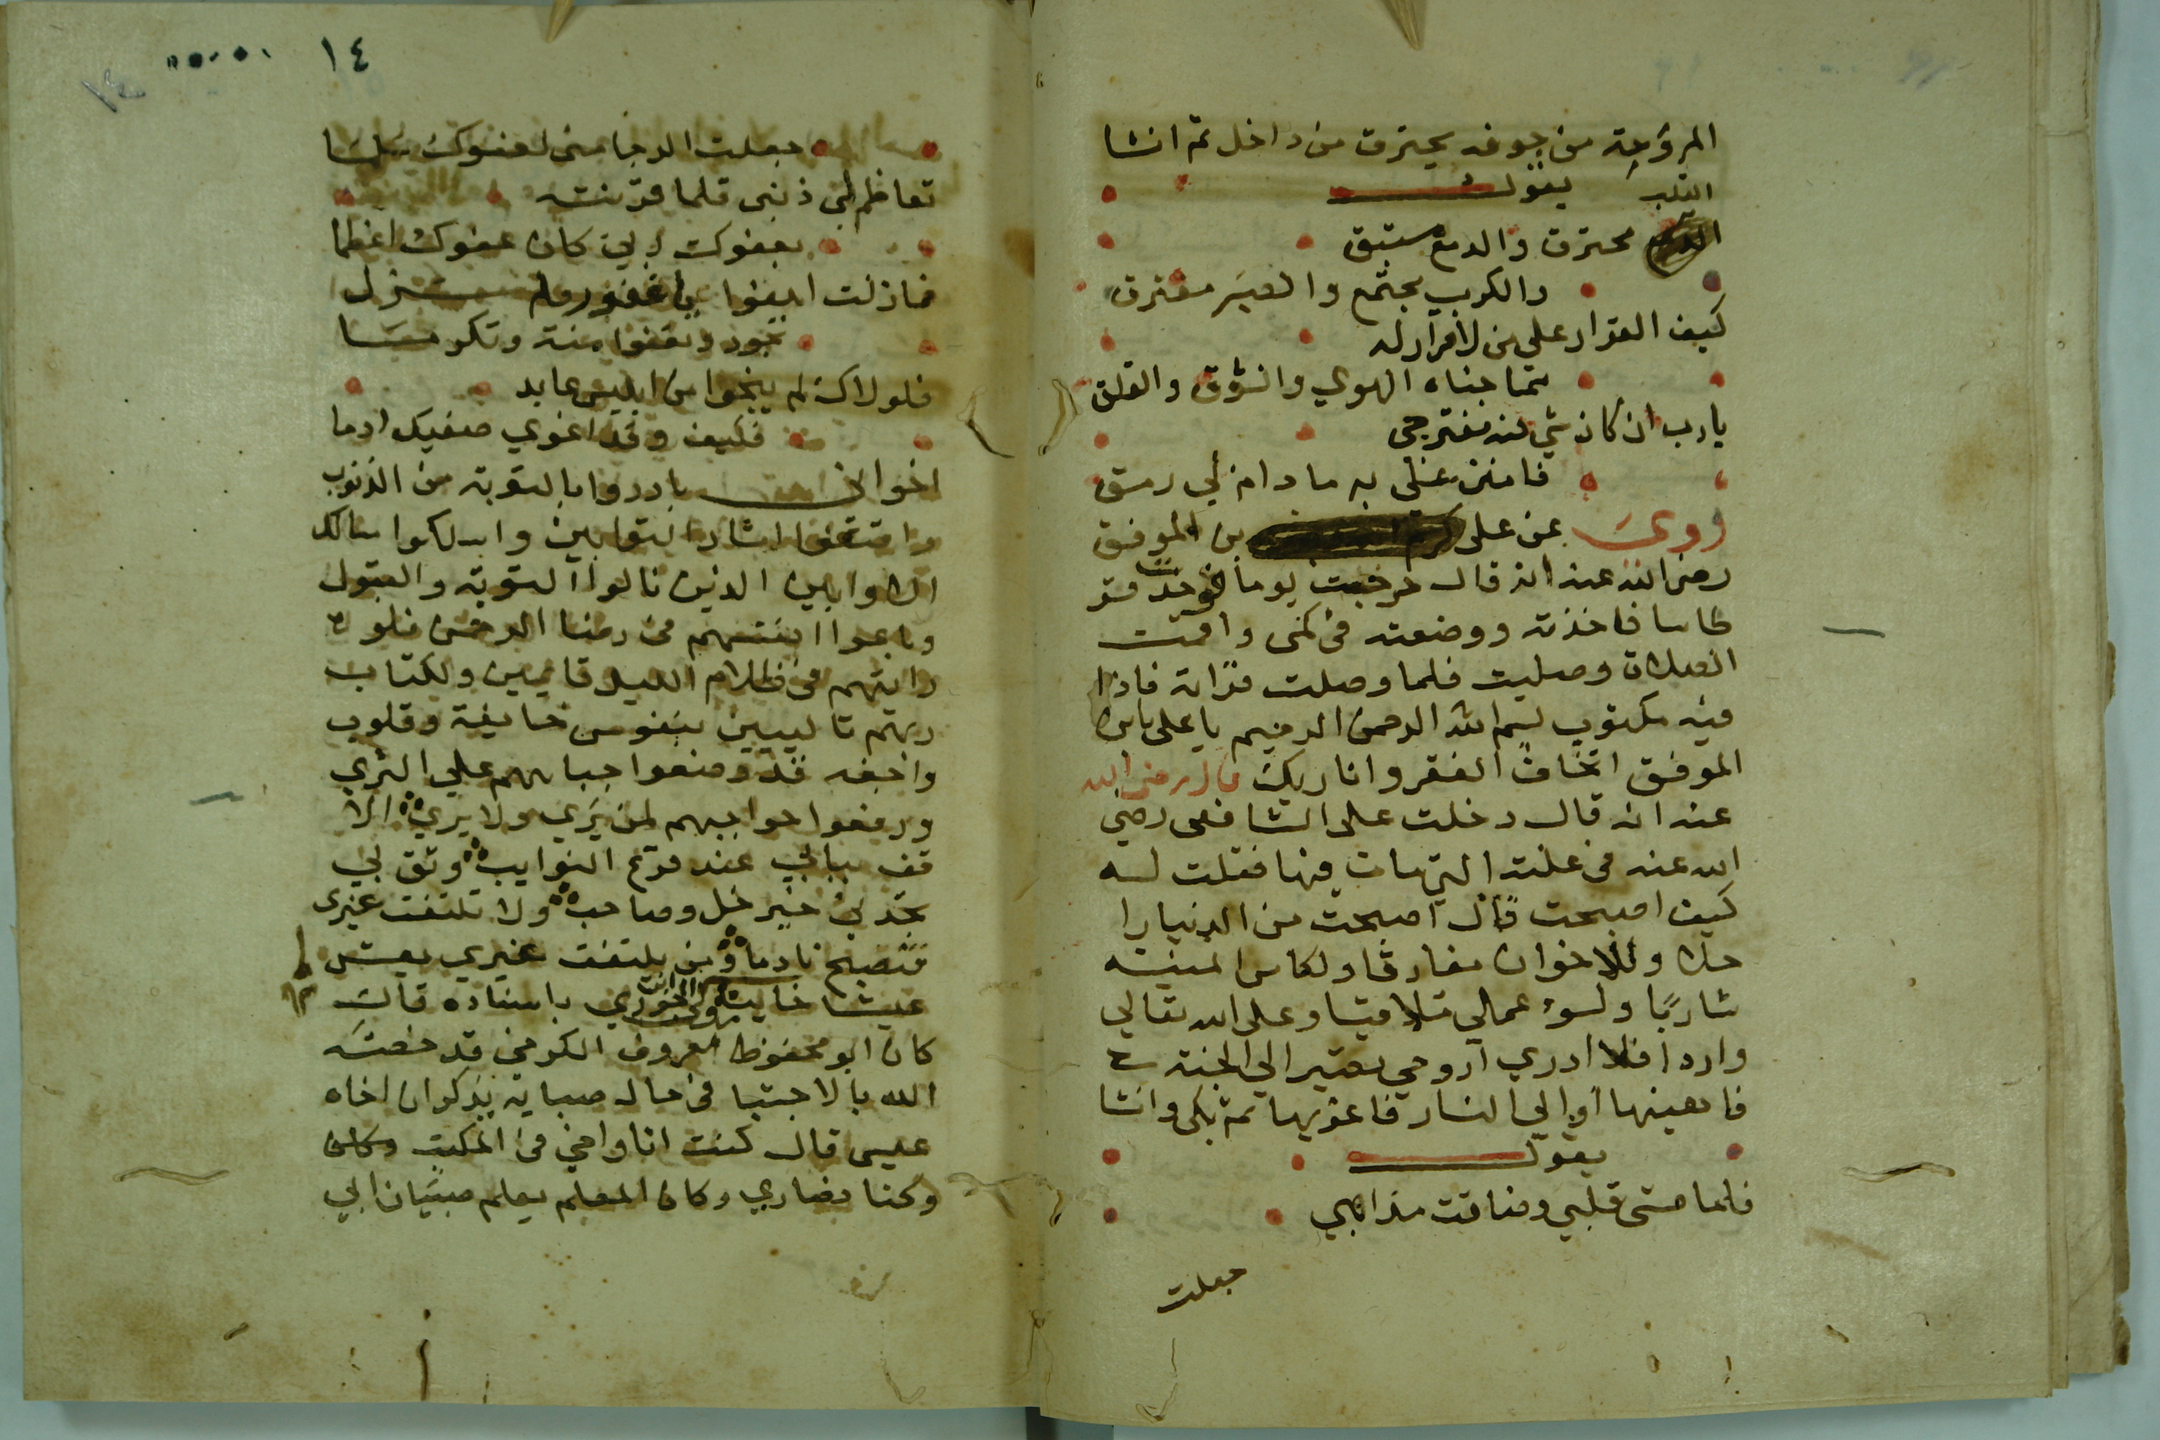 المروحة من جوفه يحترق من داخل ثم انشا
يقول
القلب
محترق والدمع مستبق
والكرب مجتمع والصبر مفترق
كيف القرار على من لا قرار له
مما جناه الهوي والشوق والقلق
يارب ان كان شي فيه مفترجي
فامنن علي به ما دام لي رمق
روى عن على بن الموفق
رضى الله عنه انه قال خرجت يوما فوجدت قر
طاسا فاخذته ووضعته في كمى واقمت
الصلاة وصليت فلما وصلت قراته فاذا
فيه مكتوب بسم الله الرحمن الرحيم يا على يا بن
الموفق اتخاف الفقر وانا ربك قال رضى الله
عنه انه قال دخلت على الشافعى رضي
الله عنه في علته التي مات فيها فقلت له
كيف اصبحت قال اصبحت من الدنيا را
حلا وللاخوان مفارقا ولكاس المنيه
شاربا ولسوء عمالي ملاقيا وعلى الله تعالي
واردا فلا ادري اروحي تصير الي الجنة
فاهنيها او الي النار فاعزيها ثم بكى وانشا
يقول
فلما قسى قلبي وضاقت مذاهبي
جعلت
١٤
جعلت الرجا منى لعفوك سلما
تعاظم لي ذنبى فلما قرنته
بعفوك ربي كان عفوك اعظما
فمازلت لم تزل
تجود وتعفوا منة وتكرمـا
فلولاك لم ينجوا من ابليس عابد
فكيف وقد اغوي صفيك ادما
اخوانى بادروا بالتوبة من الذنوب
واقتفوا اثار التوابين واسلكوا مسالك
الاوابين الذين نالوا التوبة والقبول
واتعبوا انفسهم في رضا الرحمن فلو
رايتهم في ظلام الليل قايمين ولكتاب
ربهم تاليين بنفوس خايفة وقلوب
واجفه قد وضعوا جباههم علي الثري
ورفعوا حوايجهم لمن يري ولا يري الا
قف ببابي عند قرع النوايب وثق بي
تجدني خير خل وصاحب ولا تلتفت غيرى
فتصبح نادما ومن يلتفت غيري يعش
عيشا خايب روى ابن الجوزي باسناده قال
كان ابو محفوظ معروف الكرخي قد خصه
الله بالاجتبا في حال صبايه يذكر ان اخاه
عليسى قال كنت انا واخي في المكتب وكان
وكنا نصاري وكان المعلم يعلم صبيان الي